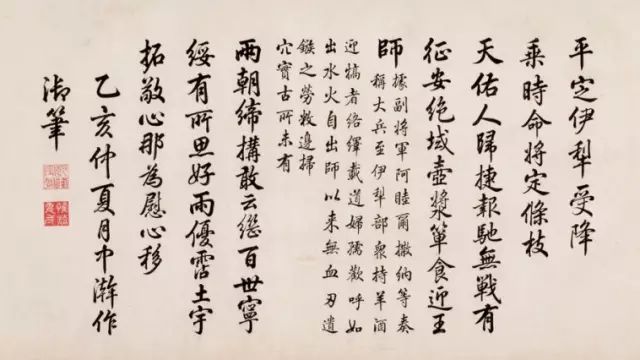 平定伊犁受降
乘時命將定條枝
天佑人歸捷報馳無戰有
征安絕域壺漿簞食迎王
師
據副將軍阿睦爾撒納等奏
稱大兵至伊犁部衆持羊酒
迎犒者絡繹載道婦孺歡呼如
出水火自出師以來無血刃遺
鏃之勞敉邊掃
穴實古所未有
兩朝締搆敢云繼百世寧
綏有所思好雨優霑土宇
拓敬心那為慰心移
乙亥仲夏月中澣作
御筆